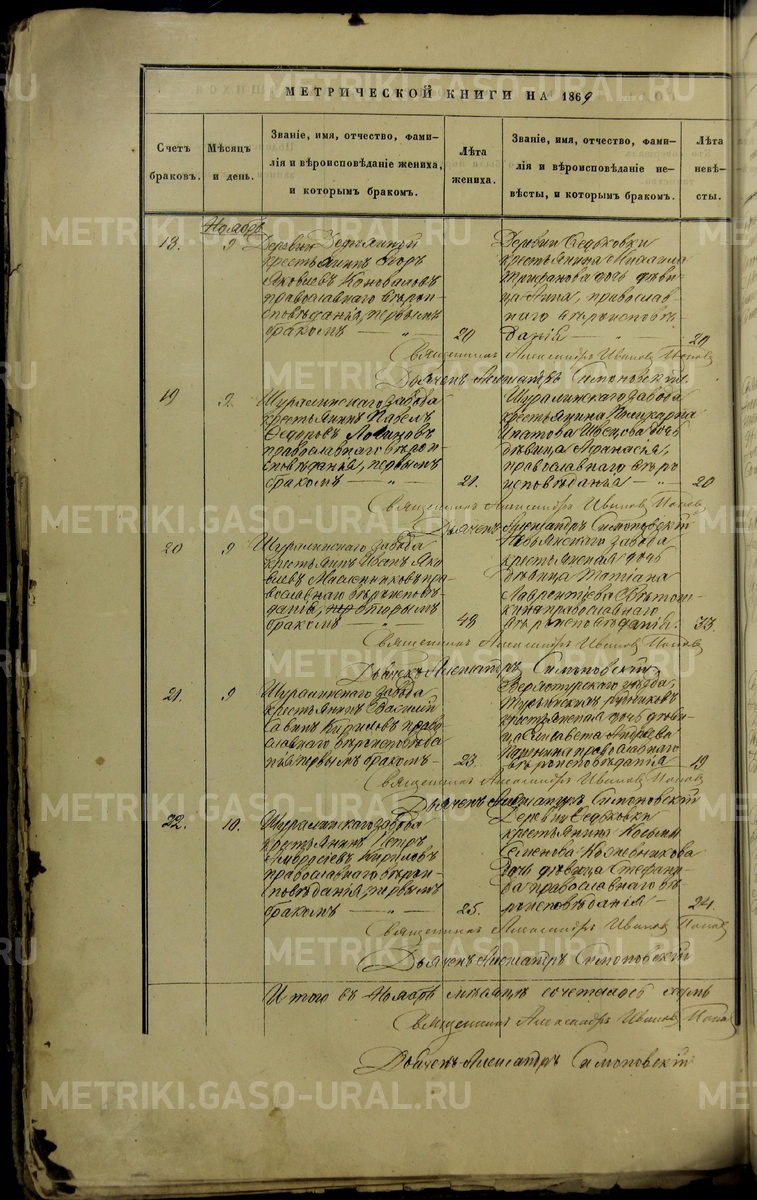 МЕТРИЧЕСКОЙ КНИГИ НА 1869
Счетъ браковъ.
Мѣсяцъ и день.
Званіе, имя, отчество, фами-
лія и вѣроисповѣданіе жениха,
и которымъ бракомъ.
Лѣта жениха.
Званіе, имя, отчество, фами-
лія и вѣроисповѣданіе не-
вѣсты, и которымъ бракомъ.
Лѣта невѣ-
сты.
Ноябрь
18. 9 Деревни
крестьянинъ Егоръ
Яковлевъ Коновалов
православнаго вѣрои-
сповѣданія, первымъ
бракомъ — „ — 20
Деревни Осѣковки
крестьянина Михаила
Трифанова дочь дѣви-
ца Анна, православ-
наго вѣроисповѣ-
данія — „ — 20
Священникъ Александръ Ивановъ Поповъ
Дьячекъ Александръ Симоновскій
19 9. Шуралинскаго завода
крестьянинъ Павелъ
Ѳедоровъ Логиновъ
православнаго вѣрои-
сповѣданья, первымъ
бракомъ — „ — 21.
Шуралинскаго завода
крестьянина Поликарпа
Ипатова Швецова дочь
дѣвица Афанасія,
православнаго вѣро
исповѣданья — „ — 20
Священникъ Александръ Ивановъ Поповъ
Дьячекъ Александръ Симоновскій
20 9 Шуралинскаго завода
крестьянинъ Иванъ Яко
влевъ Масленниковъ пра-
вославнаго вѣроисповѣ-
данія, вторымъ
бракомъ — „ — 48
Невьянскаго завода
крестьянская дочь
дѣвица Татіана
Лаврентіева
православнаго
вѣроисповѣданія. 33.
Священникъ Александръ Ивановъ Поповъ
Дьячекъ Александръ Симоновскій
21. 9 Шуралинскаго завода
крестьянинъ Василій
Савинъ Кириловъ право
славнаго вѣроисповѣда
нія первымъ бракомъ — 23.
Верхотурскаго уѣзда,
Турьинскихъ рудниковъ
крестьянская дочь дѣви-
ца Елисавета Андреева
православнаго
вѣроисповѣданія 19
Священникъ Александръ Ивановъ Поповъ
Дьячекъ Александръ Симоновскій
22. 10. Шуралинскаго завода
крестьянинъ Петръ
Амвросіевъ Кириловъ
православнаго вѣрои-
сповѣданія, первымъ
бракомъ — „ — 25.
Деревни Осѣковки
крестьянина Косьмы
Семенова Кожевникова
дочь дѣвица Стефани-
да православнаго вѣ
роисповѣданія — 24.
Священникъ Александръ Ивановъ Поповъ
Дьячекъ Александръ Симоновскій
Итого въ Ноябрѣ мѣсяцѣ сочеталось
Священникъ Александръ Ивановъ Поповъ
Дьячекъ Александръ Симоновскій
METRIKI.GASO-URAL.RU